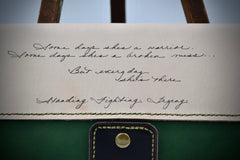 Some days she's a warrior.
Some days she's a broken mess...
But everyday
she's there
Standing. Fighting. Trying.